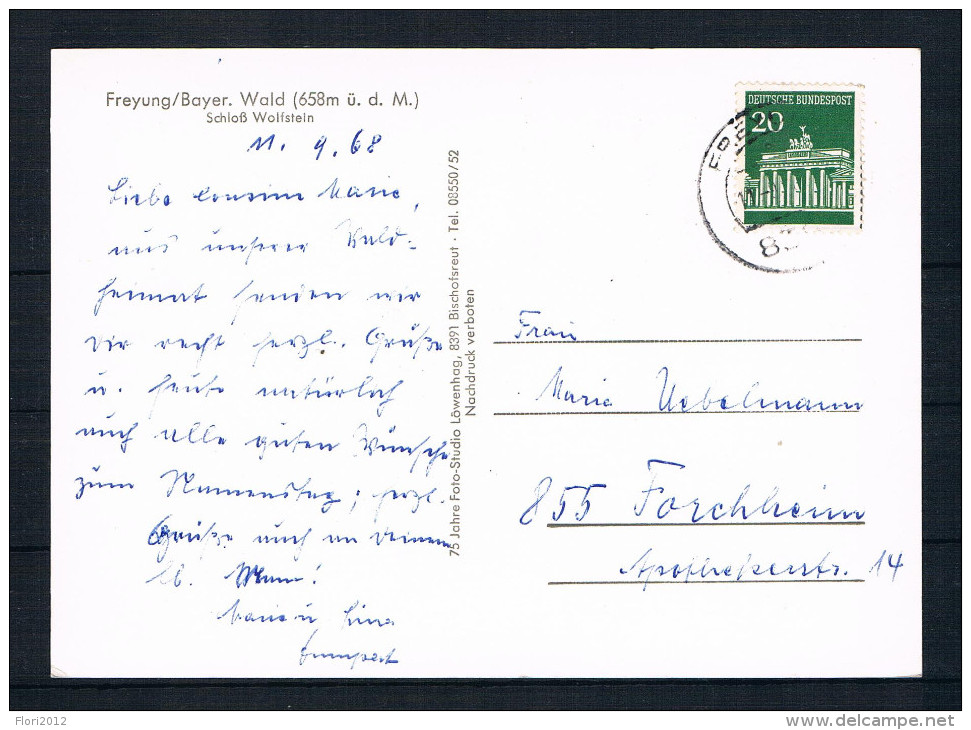 Freyung/Bayer. Wald (658m ü. d. M.)
Schloß Wolfstein
11. 9. 68
Liebe Cousine Marie,
aus unserer Wald-
heimat senden wir
Dir recht herzl. Grüße
u. heute natürlich
auch alle guten Wünsche
zum Namenstag; herzl.
Grüße auch an Deinen
lb. Mann!
u. Lina
75 Jahre Foto-Studio Löwenhag, 8391 Bischofsreut · Tel. 08550/52
Nachdruck verboten
DEUTSCHE BUNDESPOST
20
Frau
Maria Uebelmann
855 Forchheim
Apothekerstr. 14
Flori2012
www.delcampe.net